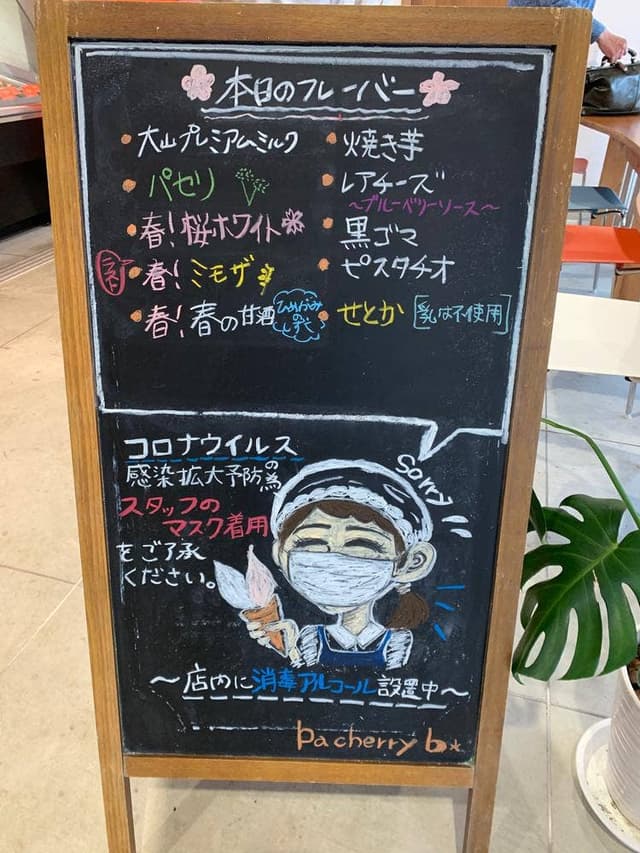 本日のフレーバー
大山プレミアムミルク
パセリ
春!桜ホワイト
ラスト
春!ミモザ
春!春の甘酒
焼き芋
レアチーズ
〜ブルーベリーソース〜
黒ゴマ
ピスタチオ
せとか [乳は不使用]
コロナウイルス
感染拡大予防の為
スタッフの
マスク着用
をご了承
ください。
Sorry
〜店内に消毒アルコール設置中〜
pa cherry b